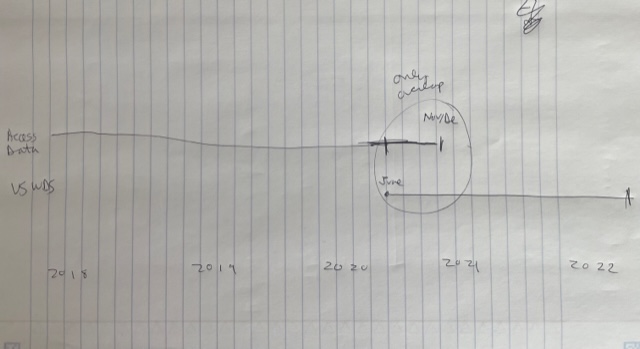 only
overlap
Nov/De
Access
Data
June
VSWDS
2018
2019
2020
2021
2022